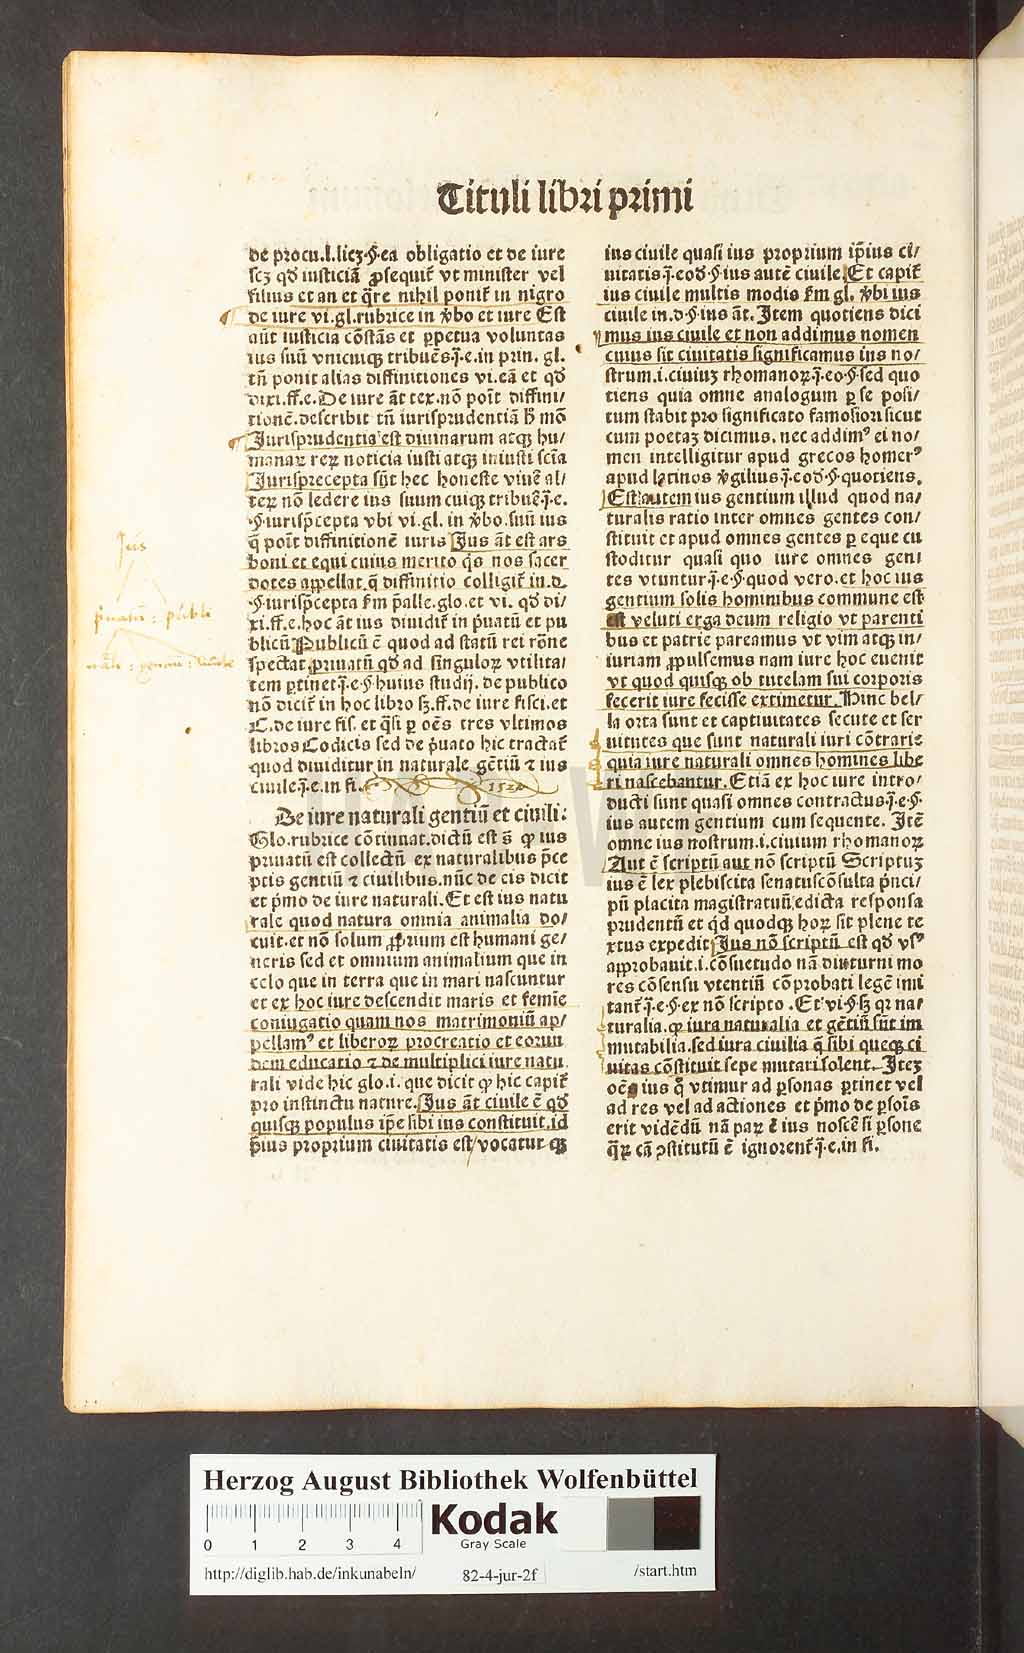 Tituli libri primi
de procu.l.licꝫ.§.ea obligatio et de iure
scꝫ qd' iusticiā ꝓsequit̃ vt minister vel
filius et an et q̄re nihil ponit̃ in nigro
de iure vi.gl.rubrice in v̓bo et iure Est
aūt iusticia cōstās et ꝑpetua voluntas
ius suū vnicuiqꝫ tribuēs.j̄.e.in prin. gl.
tn̄ ponit alias diffinitiones vi.eā et qd'
dixi.ff.e. De iure āt tex.nō poīt diffini/
tionē.describit tn̄ iurisprudentiā h̄ mō
Jurisprudentia est diuinarum atqꝫ hu/
manaꝝ reꝝ noticia iusti atqꝫ iniusti scīa
Jurisprecepta sūt hec honeste viuē al/
teꝝ nō ledere ius suum cuiqꝫ tribuē.j̄.e.
.§.iurisp̄cepta vbi vi.gl. in v̓bo.suū ius
q̄ poīt diffinitionē iuris Jus āt est ars
boni et equi cuius merito q̄s nos sacer
dotes appellat.q̄ diffinitio colligit̃ in.d.
.§.iurisp̄cepta fm p̄alle.glo.et vi. qd' di/
xi.ff.e.hoc āt ius diuidit̃ in p̓uatū et pu
blicū Publicū ē quod ad statū rei rōne
spectat priuatū qd' ad singuloꝝ vtilita/
tem ꝑtinet.j̄.e.§.huius studij. de publico
nō dicit̃ in hoc libro sꝫ.ff.de iure fisci.et
C.de iure fis. et q̄si ꝑ oēs tres vltimos
libros Codicis sed de p̓uato hic tractat̃
quod diuiditur in naturale gētiū ⁊ ius
ciuile.j̄.e.in fi. 152
De iure naturali gentiū et ciuili:
Glo.rubrice cōtinuat.dictū est s̄ ꝙ ius
priuatū est collectū ex naturalibus p̄ce
ptis gentiū ⁊ ciuilibus.nūc de eis dicit
et p̓mo de iure naturali. Et est ius natu
rale quod natura omnia animalia do/
cuit.et nō solum ꝓprium est humani ge/
neris sed et omnium animalium que in
celo que in terra que in mari nascuntur
et ex hoc iure descendit maris et femīe
coniugatio quam nos matrimoniū ap/
pellamꝰ et liberoꝝ procreatio et eorun
dem educatio ⁊ de multiplici iure natu
rali vide hic glo.i. que dicit ꝙ hic capit̃
pro instinctu nature. Jus āt ciuile ē qd'
quisqꝫ populus ip̄e sibi ius constituit.id
p̓ius proprium ciuitatis est vocatur qꝫ
ius ciuile quasi ius proprium ip̄ius ci/
uitatis.j̄.eod'.§.ius autē ciuile. Et capit̃
ius ciuile multis modis fm gl. v̓bi ius
ciuile in.d.§.ius āt. Jtem quotiens dici
mus ius ciuile et non addimus nomen
cuius sit ciuitatis significamus ius no/
strum.i.ciuiuꝫ rhomanoꝝ.j̄.eo.§.sed quo
tiens quia omne analogum ꝑ se posi/
tum stabit pro significato famosiori sicut
cum poetaꝫ dicimus. nec addimꝰ ei no/
men intelligitur apud grecos homerꝰ
apud latinos v̓gilius.j̄.eod'.§.quotiens.
Est autem ius gentium illud quod na/
turalis ratio inter omnes gentes con/
stituit et apud omnes gentes ꝑ eque cu
stoditur quasi quo iure omnes gen
tes vtuntur.j̄.e.§.quod vero.et hoc ius
gentium solis hominibus commune est
est veluti erga deum religio vt parenti
bus et patrie pareamus vt vim atqꝫ in/
iuriam ꝓpulsemus nam iure hoc euenit
vt quod quisqꝫ ob tutelam sui corporis
fecerit iure fecisse extimetur. Hinc bel/
la orta sunt et captiuitates secute et ser
uitutes que sunt naturali iuri cōtrarie
quia iure naturali omnes homines libe
ri nascebantur. Etiā ex hoc iure intro/
ducti sunt quasi omnes contractus.j̄.e.§.
ius autem gentium cum sequente. Jtē
omne ius nostrum.i.ciuium rhomanoꝝ
Aut ē scriptū aut nō scriptū Scriptuꝫ
ius ē lex plebiscita senatuscōsulta p̓nci/
pū placita magistratuū edicta responsa
prudentū et qd' quodqꝫ hoꝝ sit plene te
xtus expedit Jus nō scriptū est qd' vsꝰ
approbauit.i.cōsuetudo nā diuturni mo
res cōsensu vtentiū cōprobati legē imi
tant̃.j̄.e.§.ex nō scripto. Et vi.§.sꝫ qꝛ na/
turalia.ꝙ iura naturalia et gētiū sūt im
mutabilia.sed iura ciuilia q̄ sibi queqꝫ ci
uitas cōstituit sepe mutari solent. Jteꝫ
oēs ius q̊ vtimur ad ꝑsonas ꝑtinet vel
ad res vel ad actiones et p̓mo de ꝑsoīs
erit vidēdū nā paꝝ ē ius noscē si ꝑsone
q̄ꝝ cā ꝯstitutū ē ignorent̃.j̄.e.in fi.
Jus
priuatū : publi
natu : gentiu : ciuile
HAB W
Herzog August Bibliothek Wolfenbüttel
0 1 2 3 4
Kodak
Gray Scale
http://diglib.hab.de/inkunabeln/ 82-4-jur-2f /start.htm